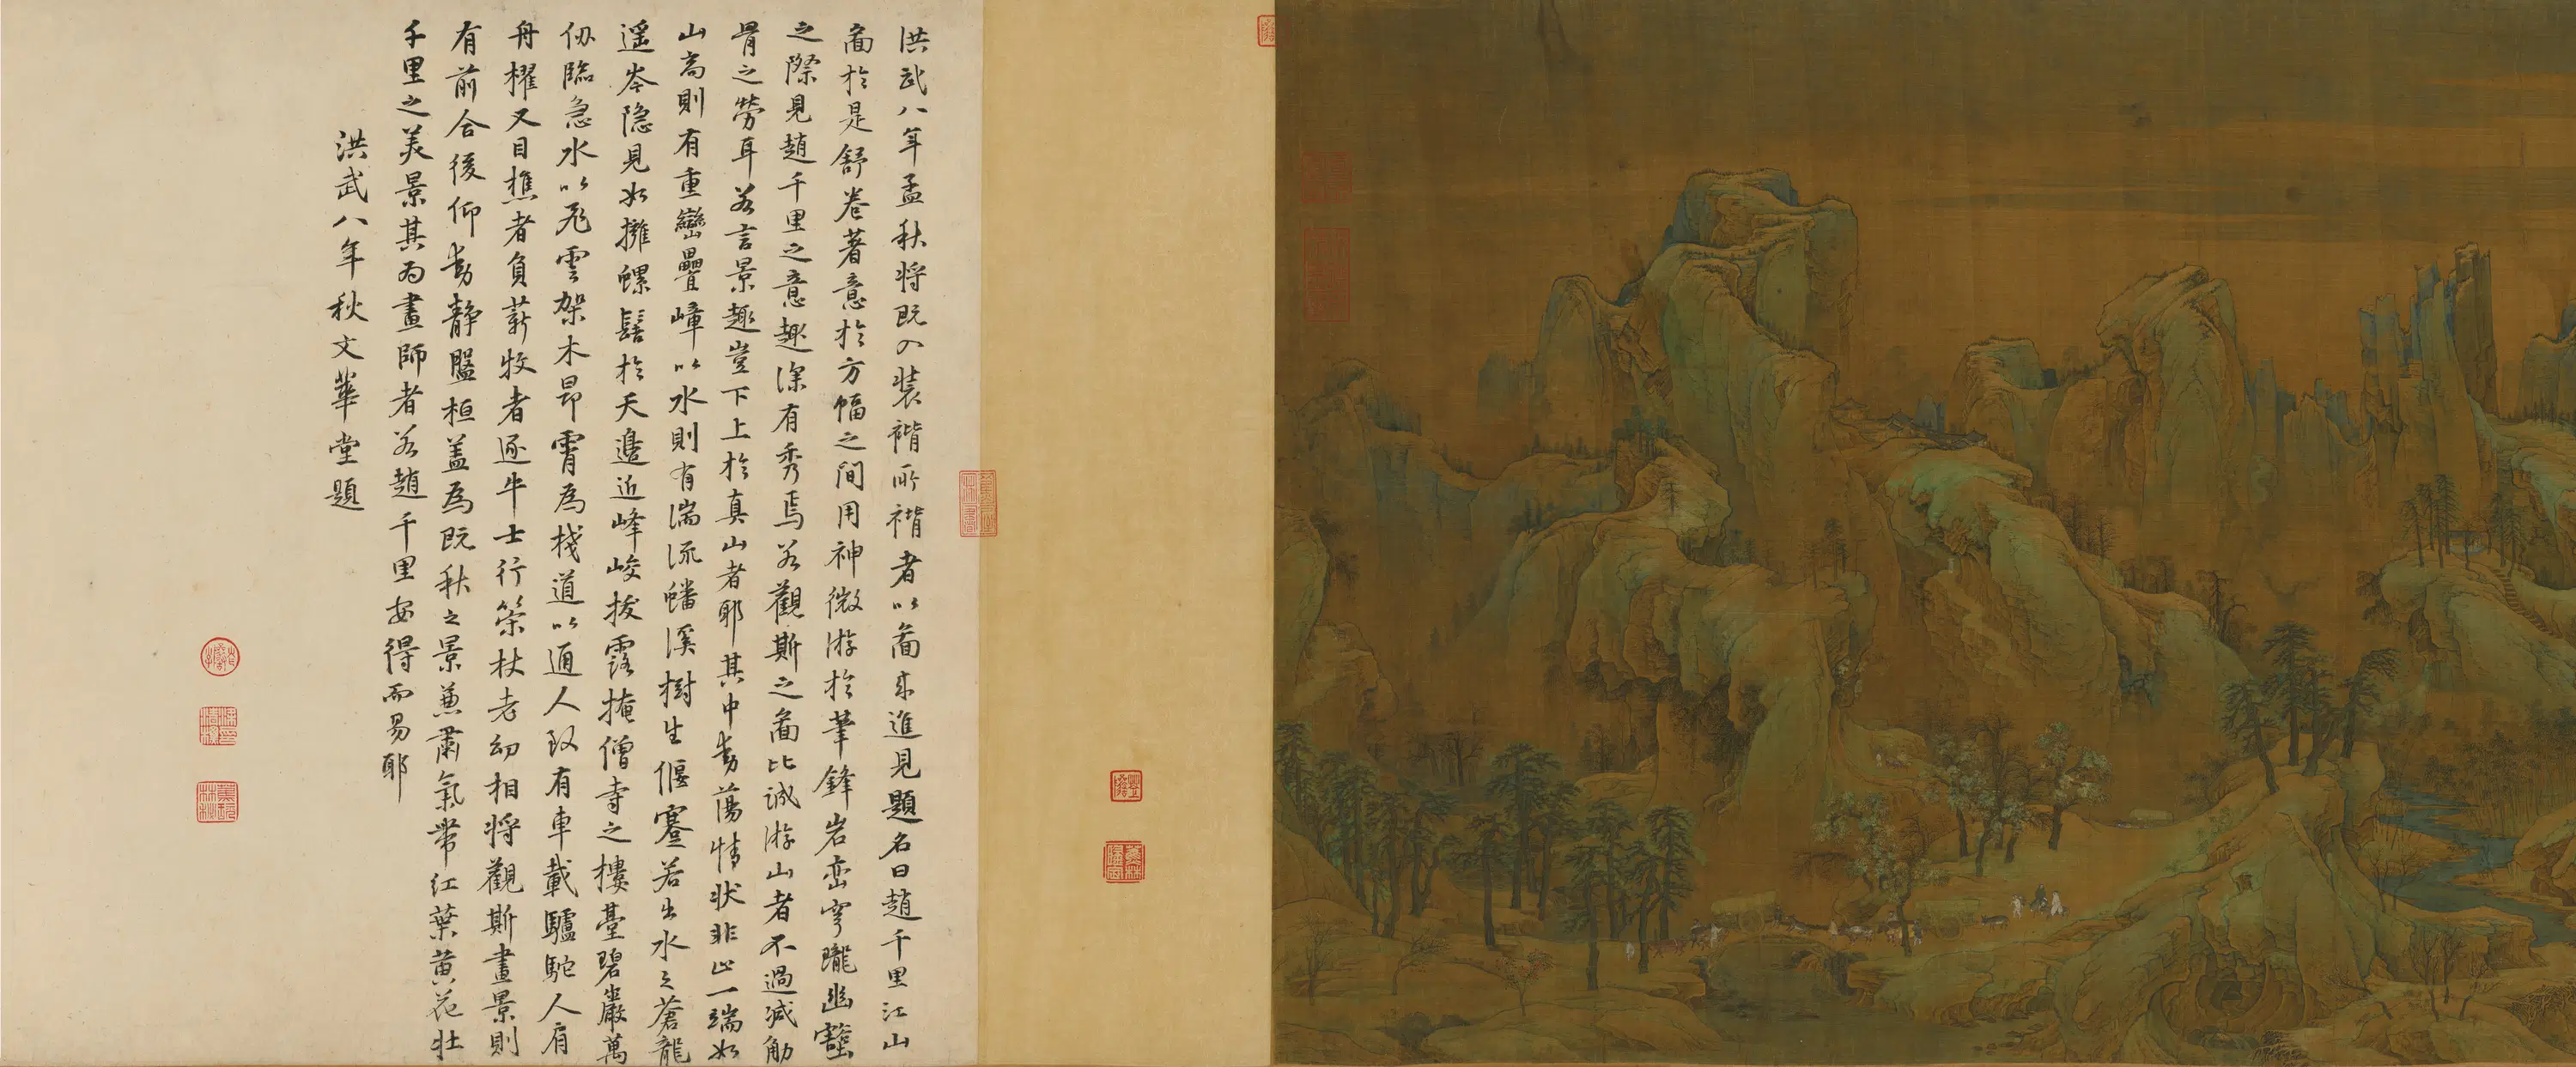 洪武八年孟秋將既入裝褙所褙者以啚來進見題名曰趙千里江山
啚於是舒卷著意於方幅之間用神微游於筆鋒岩巒穹瓏幽壑
之際見趙千里之意趣深有秀焉若觀斯之啚比誠游山者不過減觔
骨之勞耳若言景趣豈下上於真山者耶其中動蕩情狀非止一端如
山高則有重巒疊嶂以水則有湍流蟠溪樹生偃蹇若出水之蒼龍
遥岑隐見如擁螺髻於天邊近峰峻拔露掩僧寺之樓臺碧巖萬
仭臨急水以飛雲架木昂霄為棧道以通人致有車載驢駝人肩
舟櫂又目樵者負薪牧者逐牛士行策杖老幼相將觀斯畫景則
有前合後仰動靜盤桓盖為既秋之景兼肅氣帶红葉黄花壯
千里之美景其為畫師者若趙千里安得而易耶
洪武八年秋文華堂題